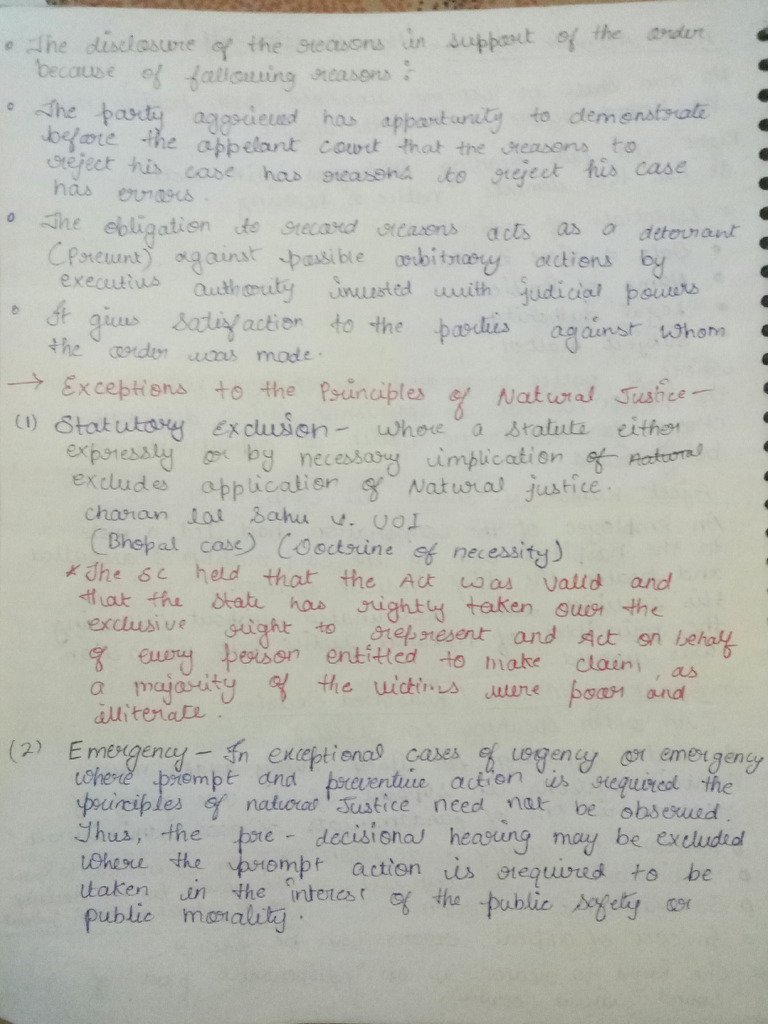 • The disclosure of the reasons in support of the order
because of following reasons :
• The party aggrieved has opportunity to demonstrate
before the appelant court that the reasons to
reject his case has reasons to reject his case
has errors.
• The obligation to record reasons acts as a deterrant
(Prevent) against possible arbitrary actions by
executive authority invested with judicial powers
• It gives satisfaction to the parties against whom
the order was made.
→ Exceptions to the Principles of Natural Justice -
(1) Statutory Exclusion - Where a statute either
expressly or by necessary implication of Natural
excludes application of Natural justice.
Charan Lal Sahu v. UOI
(Bhopal case) (Doctrine of necessity)
* The SC held that the Act was valid and
that the State has rightly taken over the
exclusive right to represent and Act on behalf
of every person entitled to make claim, as
a majority of the victims were poor and
illiterate.
(2) Emergency - In exceptional cases of urgency or emergency
where prompt and preventive action is required the
principles of natural Justice need not be observed.
Thus, the pre - decisional hearing may be excluded
where the prompt action is required to be
taken in the interest of the public safety or
public morality.